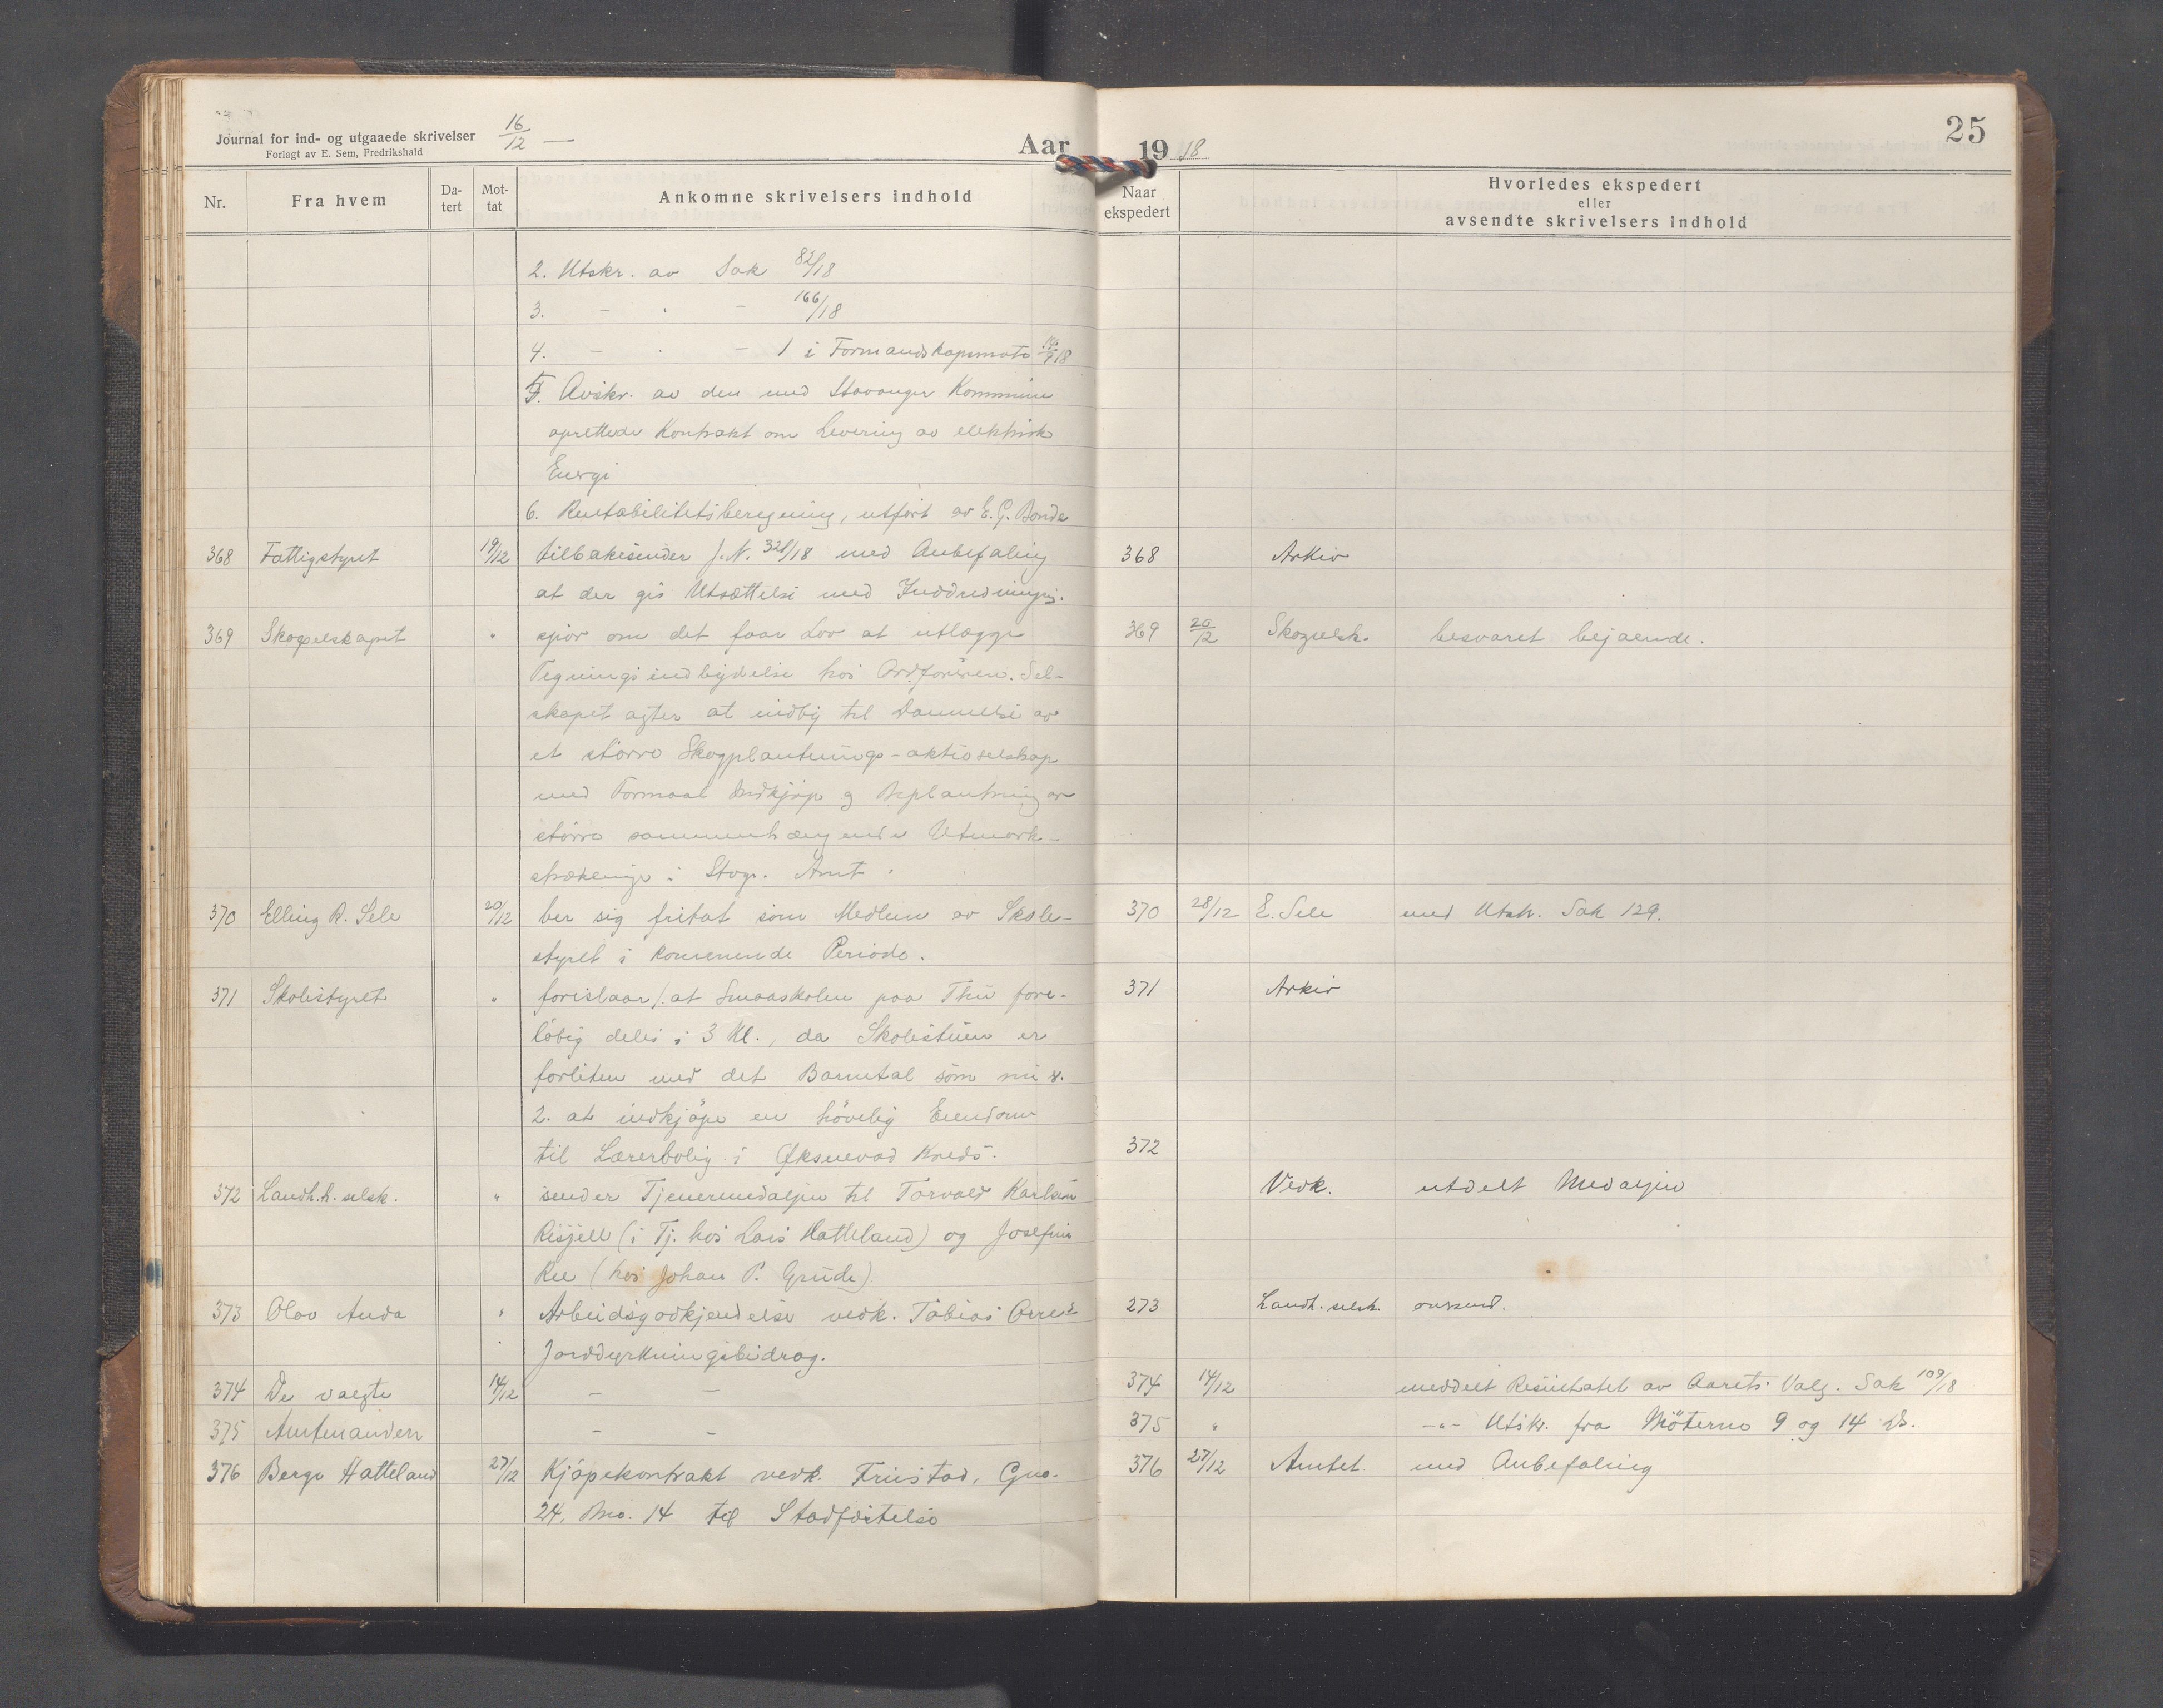 Journal for ind- og utgaaede skrivelser 16/12 —
Forlagt av E. Sem, Fredrikshald
Aar 19 18
25
Nr. Fra hvem Da-tert Mot-tat Ankomne skrivelsers indhold
Naar ekspedert Hvorledes ekspedert eller avsendte skrivelsers indhold
2. Utskr. av Sak 82/18
3. - . - 166/18
4. - . - 1 i Formandskapsmøte 18
5. Avskr. av den med Stavanger Kommune
oprettede Kontrakt om Levering av elektrisk
Energi
6. Rentabilitetsberegning, utført av E. G. Bonde
368 Fattigstyret 19/12 tilbakesender J.N. 328/18 med Anbefaling
at der gis Utsættelse med Inddrivningen.
369 Skogselskapet " spør om det faar Lov at utlægge
Tegningsindbydelse hos Ordføreren. Sel-
skapet agter at indby til Dannelse av
et større Skogplantnings-aktieselskap
med Formaal Indkjøp og Beplantning av
større sammenhængende Utmark-
strækninger i Stvgr. Amt.
370 Elling R. Sele 20/12 ber sig fritat som Medlem av Skole-
styret i kommende Periode.
371 Skolestyret " foreslaar 1. at Smaaskolen paa Thu fore-
løbig deles i 3 Kl., da Skolestuen er
forliten med det Barnetal som nu er.
2. at indkjøpe en høvelig Eiendom
til Lærerbolig i Øksnevad Kreds.
372 Landh.h. selsk. " sender Tjenermedaljen til Torvald Karlsen
Risjell (i Tj. hos Lars Hatteland) og Josefine
Ree (hos Johan P. Grude)
373 Olav Anda " Arbeidsgodkjendelse vedk. Tobias Orres
Jorddyrkningsbidrag.
374 De valgte 14/12 — —
375 Amtmanden - -
376 Berge Hatteland 27/12 Kjøpekontrakt vedk. Friistad, Gno.
24, Bno. 14 til Stadfæstelse
368 Arkiv
369 20/12 Skogselsk. besvaret bejaende.
370 28/12 E. Sele med Utskr. Sak 129.
371 Arkiv
372
Vedk. utdelt Medaljen
273 Landh. selsk. oversend.
374 14/12 meddelt Resultatet av Aarets Valg. Sak 109/18
375 " -"- Utskr. fra Møterne 9 og 14 ds.
376 27/12 Amtet med Anbefaling